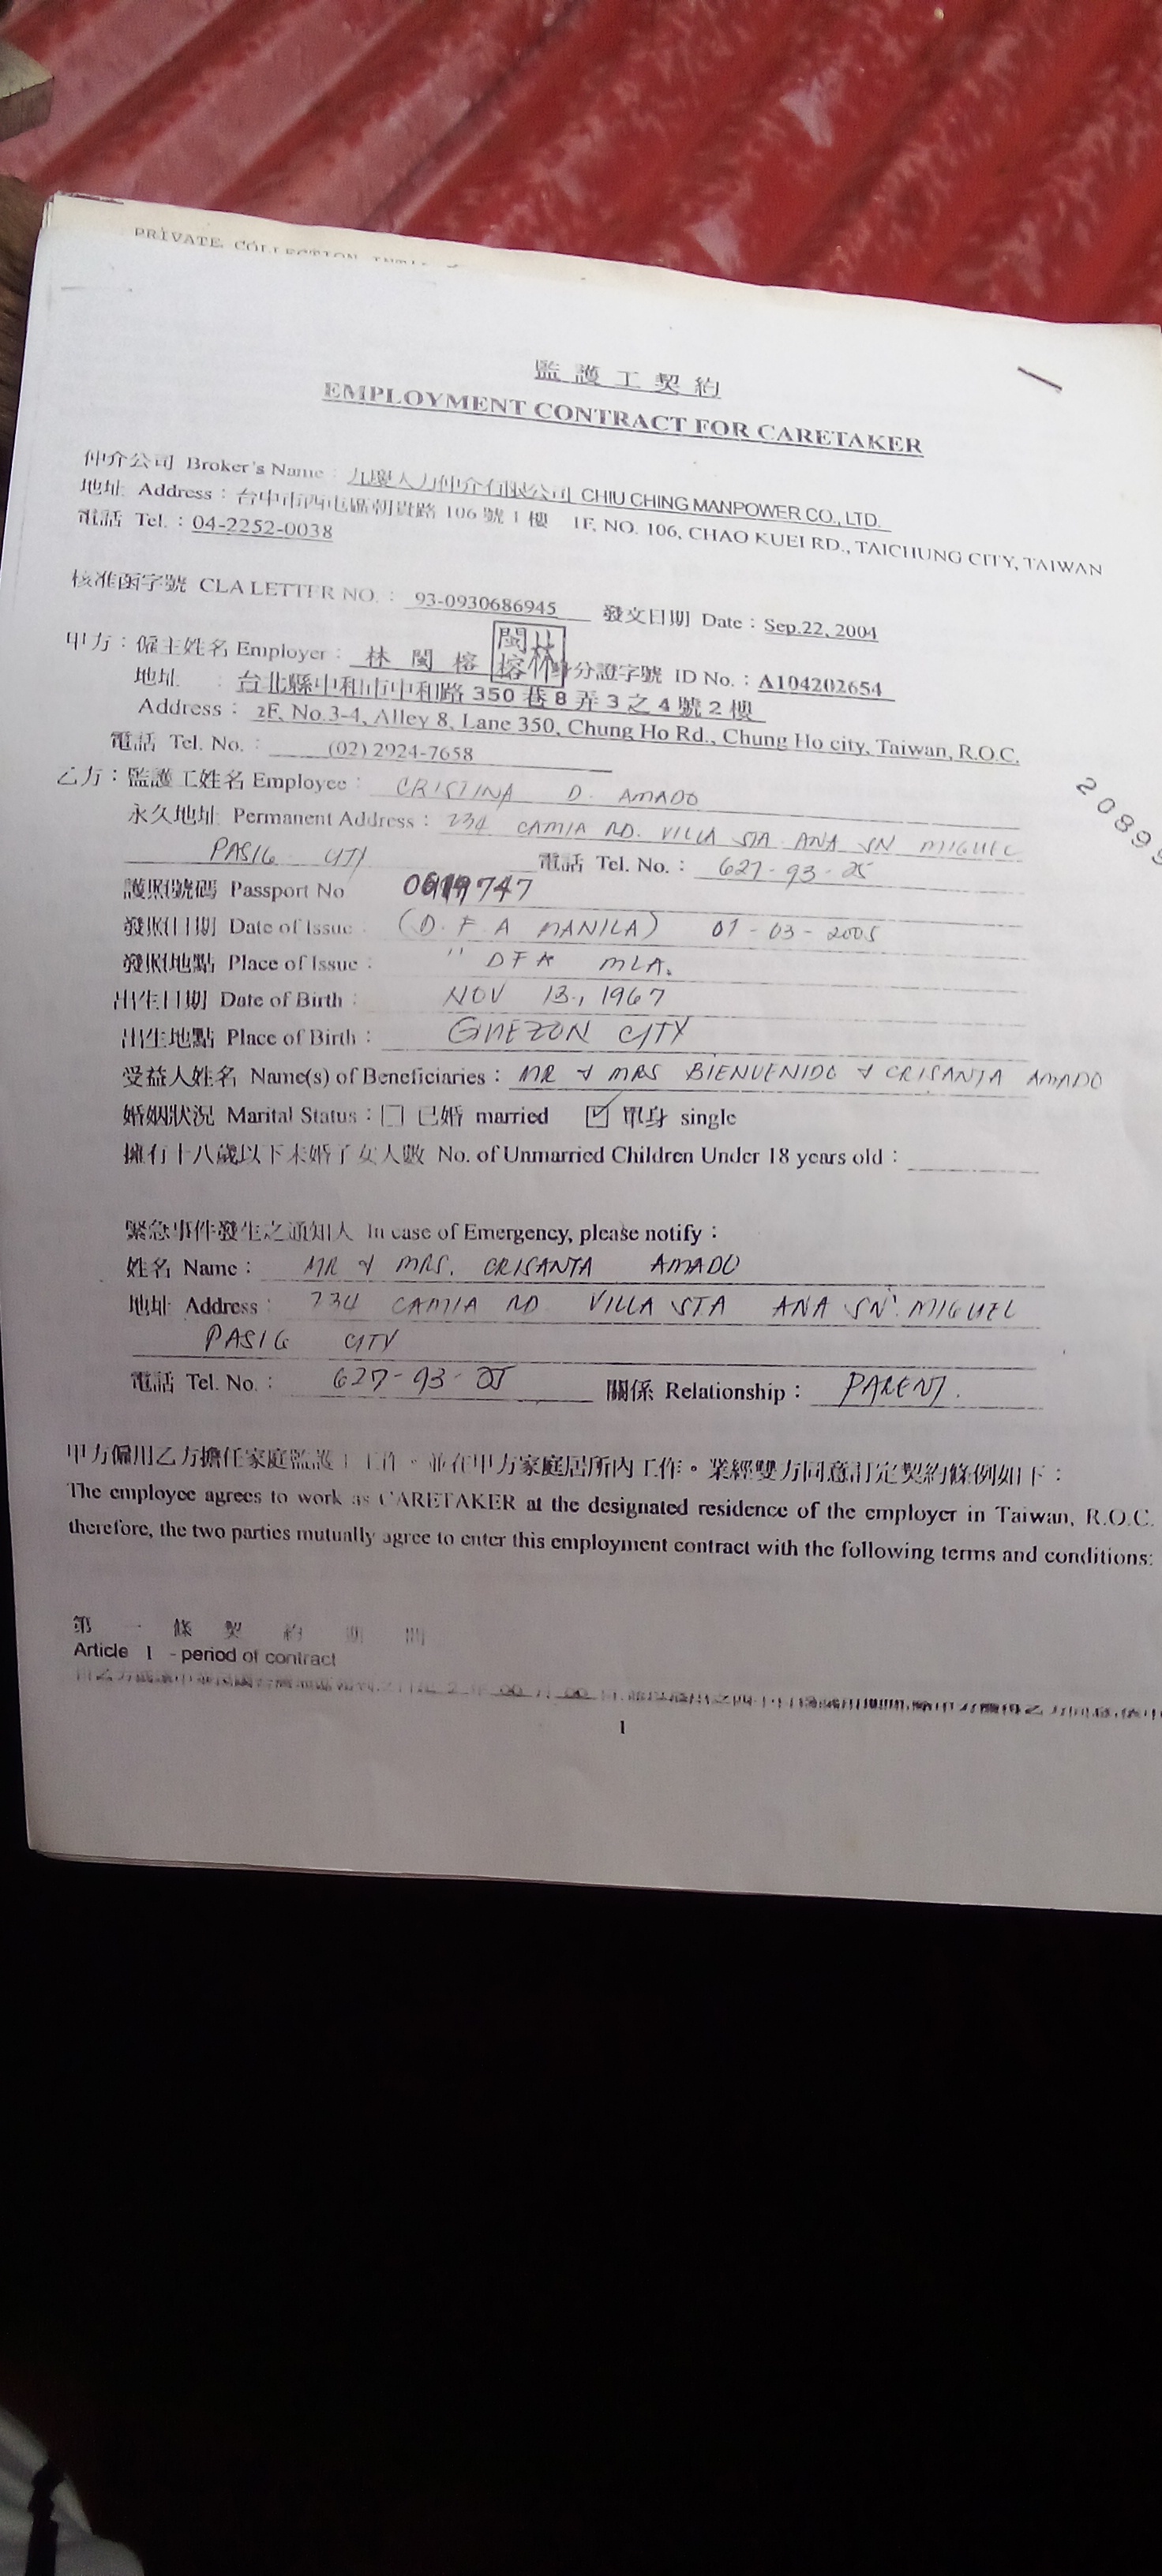 PRIVATE COLLECTION
監護工契約
EMPLOYMENT CONTRACT FOR CARETAKER
仲介公司 Broker's Name：九慶人力仲介有限公司 CHIU CHING MANPOWER CO., LTD.
地址 Address：台中市西屯區朝貴路 106 號 1 樓 1F, NO. 106, CHAO KUEI RD., TAICHUNG CITY, TAIWAN
電話 Tel.：04-2252-0038
核准函字號 CLA LETTER NO.：93-0930686945 發文日期 Date：Sep.22, 2004
甲方：僱主姓名 Employer：林閩榕 身分證字號 ID No.：A104202654
地址：台北縣中和市中和路 350 巷 8 弄 3 之 4 號 2 樓
Address：2F, No.3-4, Alley 8, Lane 350, Chung Ho Rd., Chung Ho city, Taiwan, R.O.C.
電話 Tel. No.：(02) 2924-7658
乙方：監護工姓名 Employee：CRISTINA D. AMADO
20899
永久地址 Permanent Address：234 CAMIA RD. VILLA STA ANA SN MIGUEL
PASIG CITY 電話 Tel. No.：627-93-25
護照號碼 Passport No
發照日期 Date of Issue：(D.F.A MANILA) 01-03-2005
發照地點 Place of Issue：" DFA MLA.
出生日期 Date of Birth：NOV 13., 1967
出生地點 Place of Birth：QUEZON CITY
受益人姓名 Name(s) of Beneficiaries：MR & MRS BIENVENIDO & CRISANTA AMADO
婚姻狀況 Marital Status：□ 已婚 married ☑ 單身 single
擁有十八歲以下未婚子女人數 No. of Unmarried Children Under 18 years old：
緊急事件發生之通知人 In case of Emergency, please notify：
姓名 Name：MR & MRS. CRISANTA AMADO
地址 Address：234 CAMIA RD VILLA STA ANA SN MIGUEL
PASIG CITY
電話 Tel. No.：627-93-25 關係 Relationship：PARENT.
甲方僱用乙方擔任家庭監護工工作。並在甲方家庭居所內工作。業經雙方同意訂定契約條例如下：
The employee agrees to work as CARETAKER at the designated residence of the employer in Taiwan, R.O.C.
therefore, the two parties mutually agree to enter this employment contract with the following terms and conditions:
第一條 契約期間
Article 1 - period of contract
1